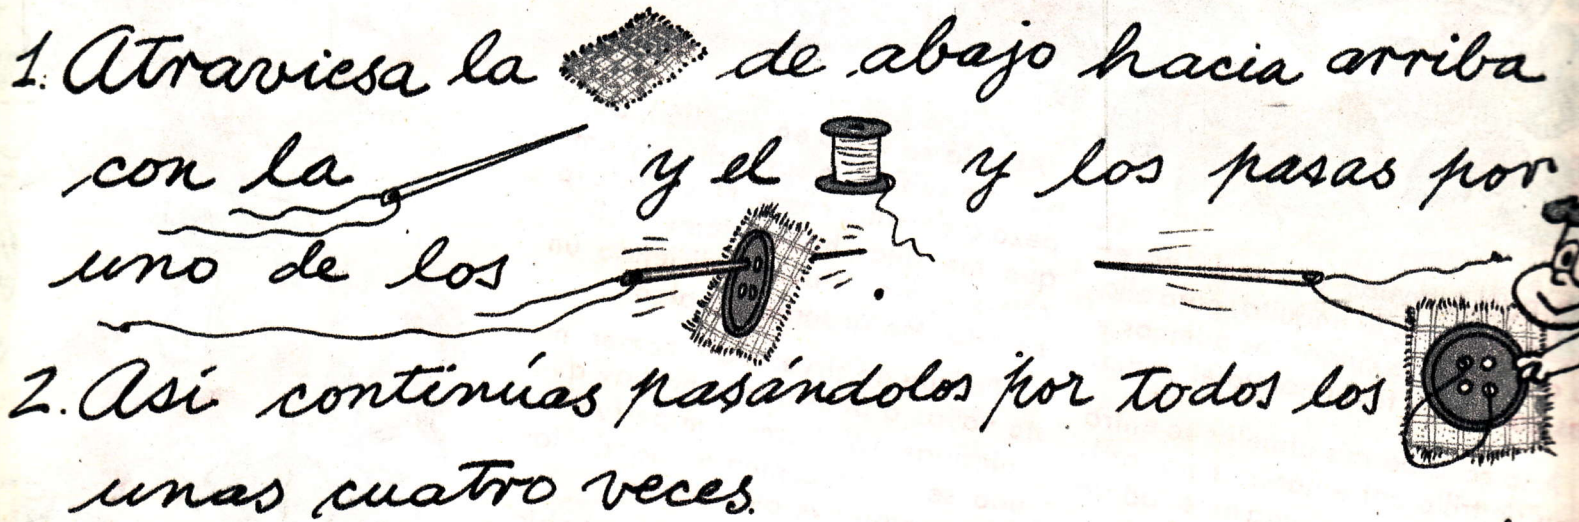 1. Atraviesa la de abajo hacia arriba
con la y el y los pasas por
uno de los .
2. Así continúas pasándolos por todos los
unas cuatro veces.